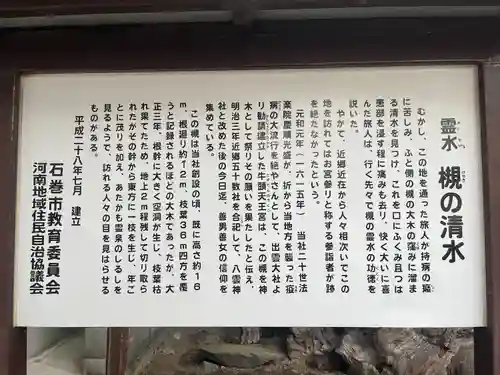 霊水 槻の清水
むかし、この地を通った旅人が持病の癪
に苦しみ、ふと側の槻の大木の窪みに溜ま
る清水を見つけ、これを口にふくみ且つは
患部を浸す程に痛みも去り、快く大いに喜
んだ旅人は、行く先々で槻の霊水の功徳を
説いた。
やがて、近郷近在から人々相次いでこの
地を訪れてはお宮参りと称する参詣者が跡
を絶たなかったという。
元和元年(一六一五年)当社二十世法
楽院慶順光盛が、折から当地方を襲った疫
病の大流行を絶やさんとして、出雲大社よ
り勧請建立した牛頭天王宮は、この槻を神
木として祭りその願いを果たしたと伝え
明治三年近郷五十数社を合祀して、八雲神
社と改めた後の今日迄、善男善女の信仰を
集めている。
この槻は当社創設の頃、既に高さ約16
m、根場り約12m、枝葉36m四方を覆
うと記録されるほどの大木であったが、大
正三年、根幹に大きく空洞が生じ、枝葉枯
れ果てたため、地上2m程残して切り取ら
れたがその幹から東方に一枝を生じ、年ご
とに茂りを加え、あたかも霊泉のしるしを
見るようで、訪れる人々の目を見はらせる
ものがある。
平成二十八年七月 建立
石巻市教育委員会
河南地域住民自治協議会